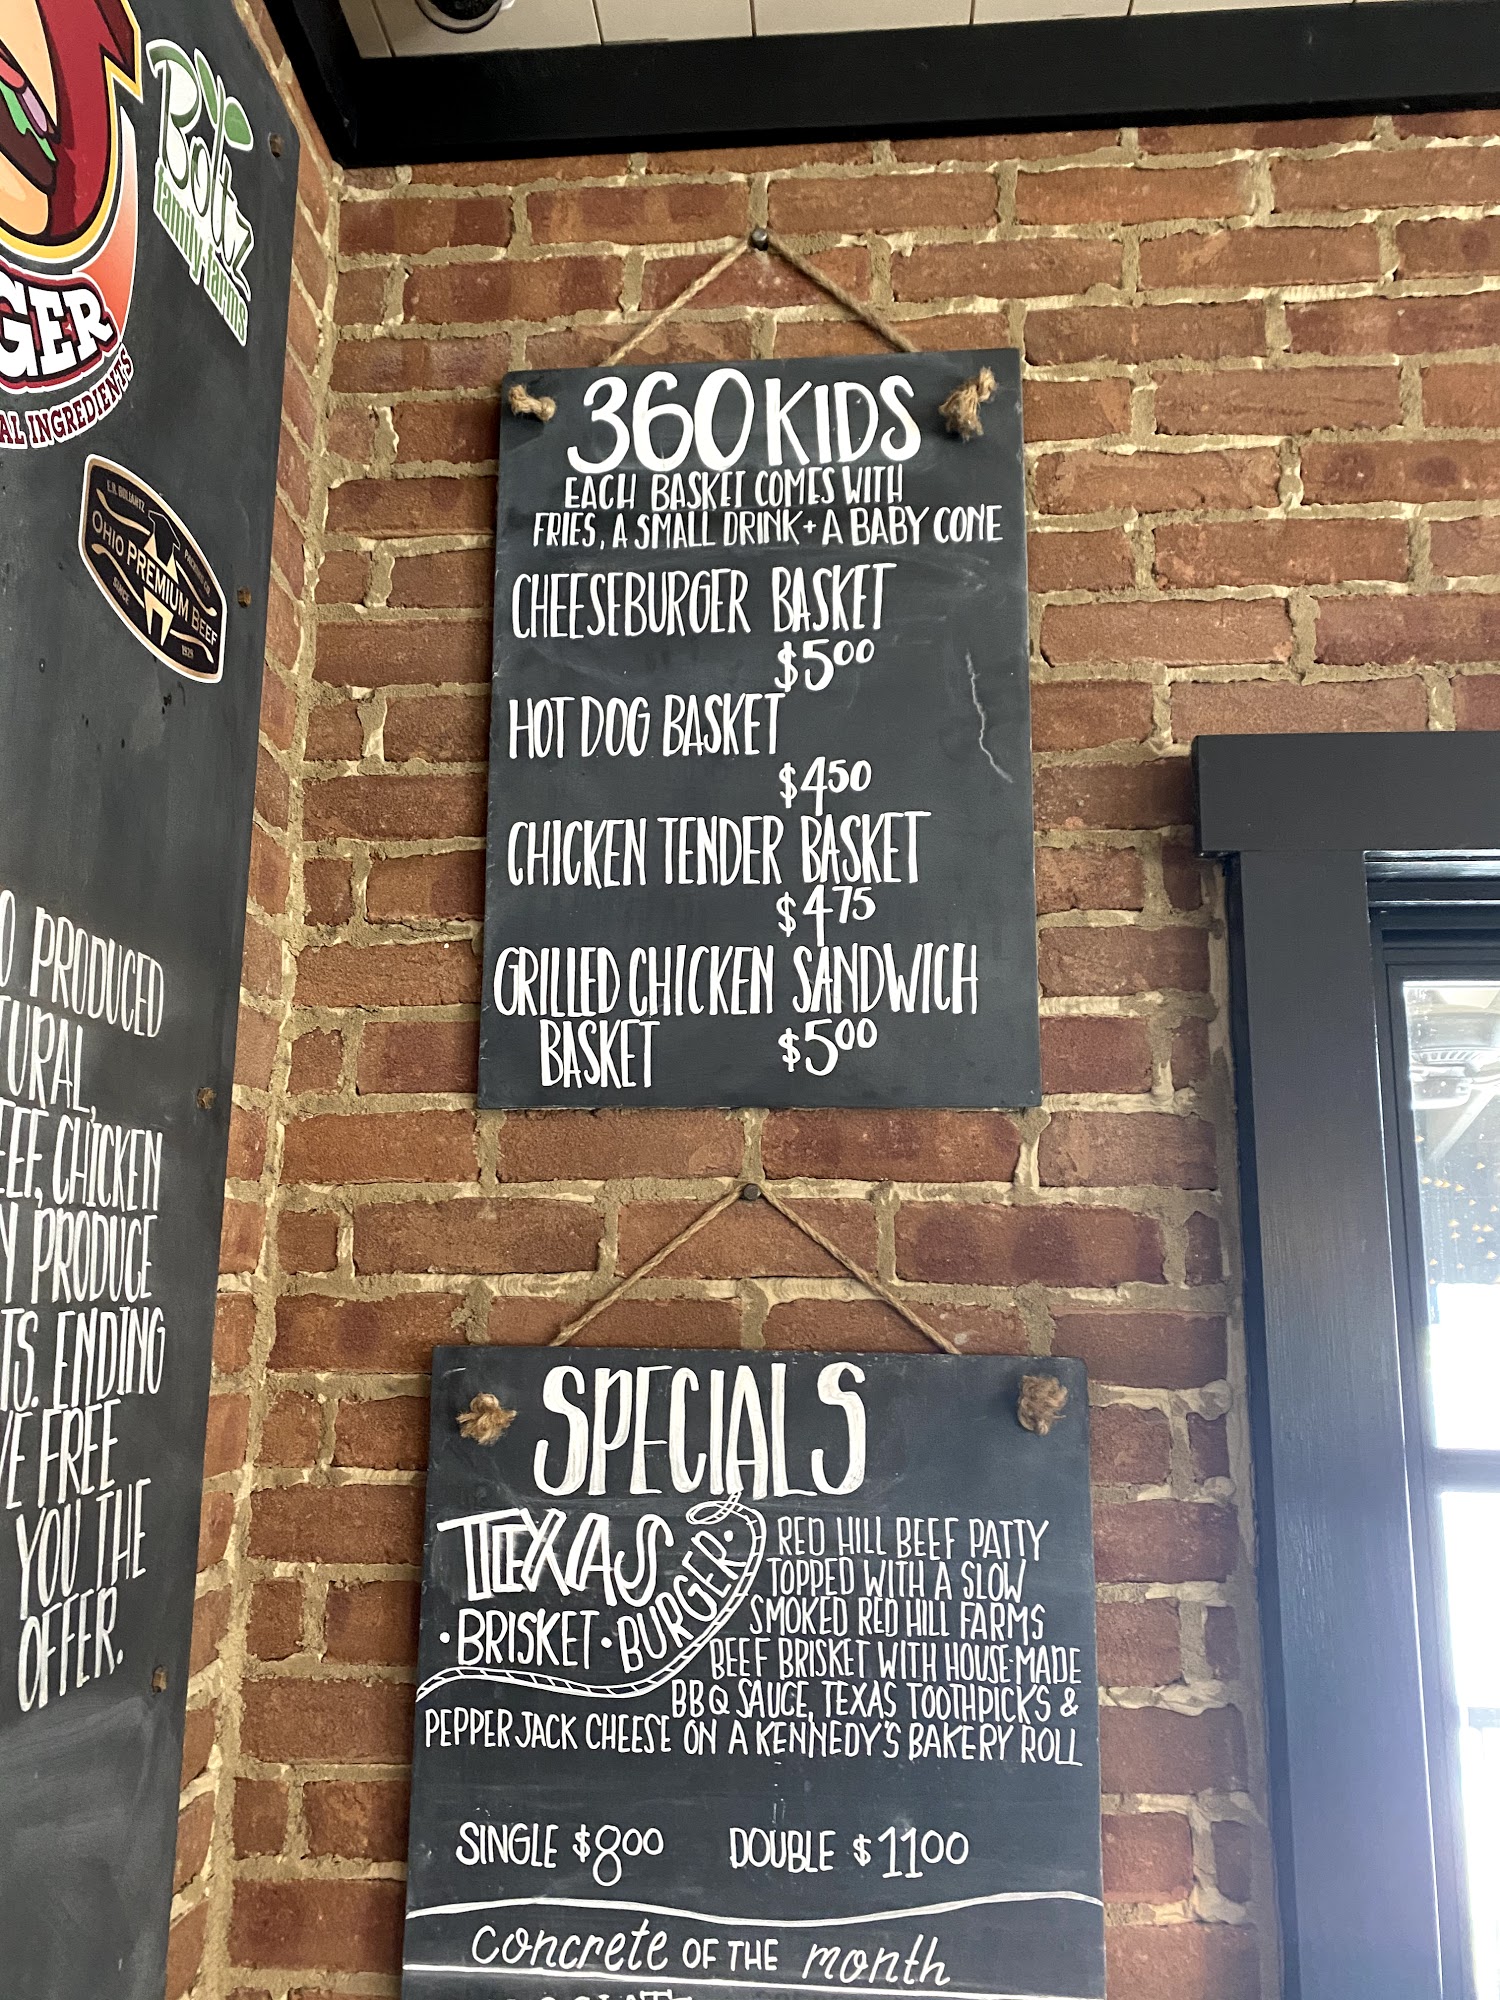 GER
AL INGREDIENTS
Boltz
family farms
E.R. BOLIANTZ
PACKING CO.
OHIO PREMIUM BEEF
SINCE
1929
PRODUCED
CHICKEN
PRODUCE
ENDING
FREE
YOU THE
OFFER.
360 KIDS
EACH BASKET COMES WITH
FRIES, A SMALL DRINK + A BABY CONE
CHEESEBURGER BASKET
$500
HOT DOG BASKET
$450
CHICKEN TENDER BASKET
$475
GRILLED CHICKEN SANDWICH
BASKET $500
SPECIALS
TEXAS
• BRISKET • BURGER •
RED HILL BEEF PATTY
TOPPED WITH A SLOW
SMOKED RED HILL FARMS
BEEF BRISKET WITH HOUSE-MADE
BBQ SAUCE, TEXAS TOOTHPICKS &
PEPPER JACK CHEESE ON A KENNEDY'S BAKERY ROLL
SINGLE $800 DOUBLE $1100
concrete OF THE month